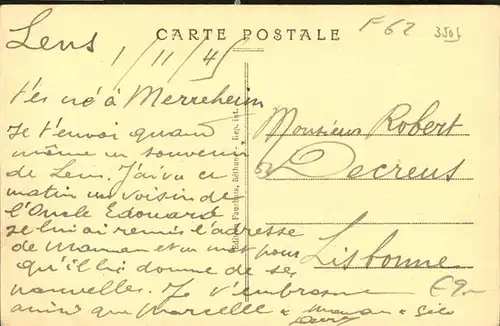 CARTE POSTALE
F62
3501
Lens
1/11/45
t'es né à Merreheim
Je t'envoi quand
même un souvenir
de Lens. J'ai vu ce
matin un voisin de
l'Oncle Edouard
je lui ai remis l'adresse
de Maman et un mot pour
qu'il lui donne de ses
nouvelles. Je t'embrasse
ainsi que Marcelle
Maman
Monsieur Robert
Decreus
Lisbonne
€9.-